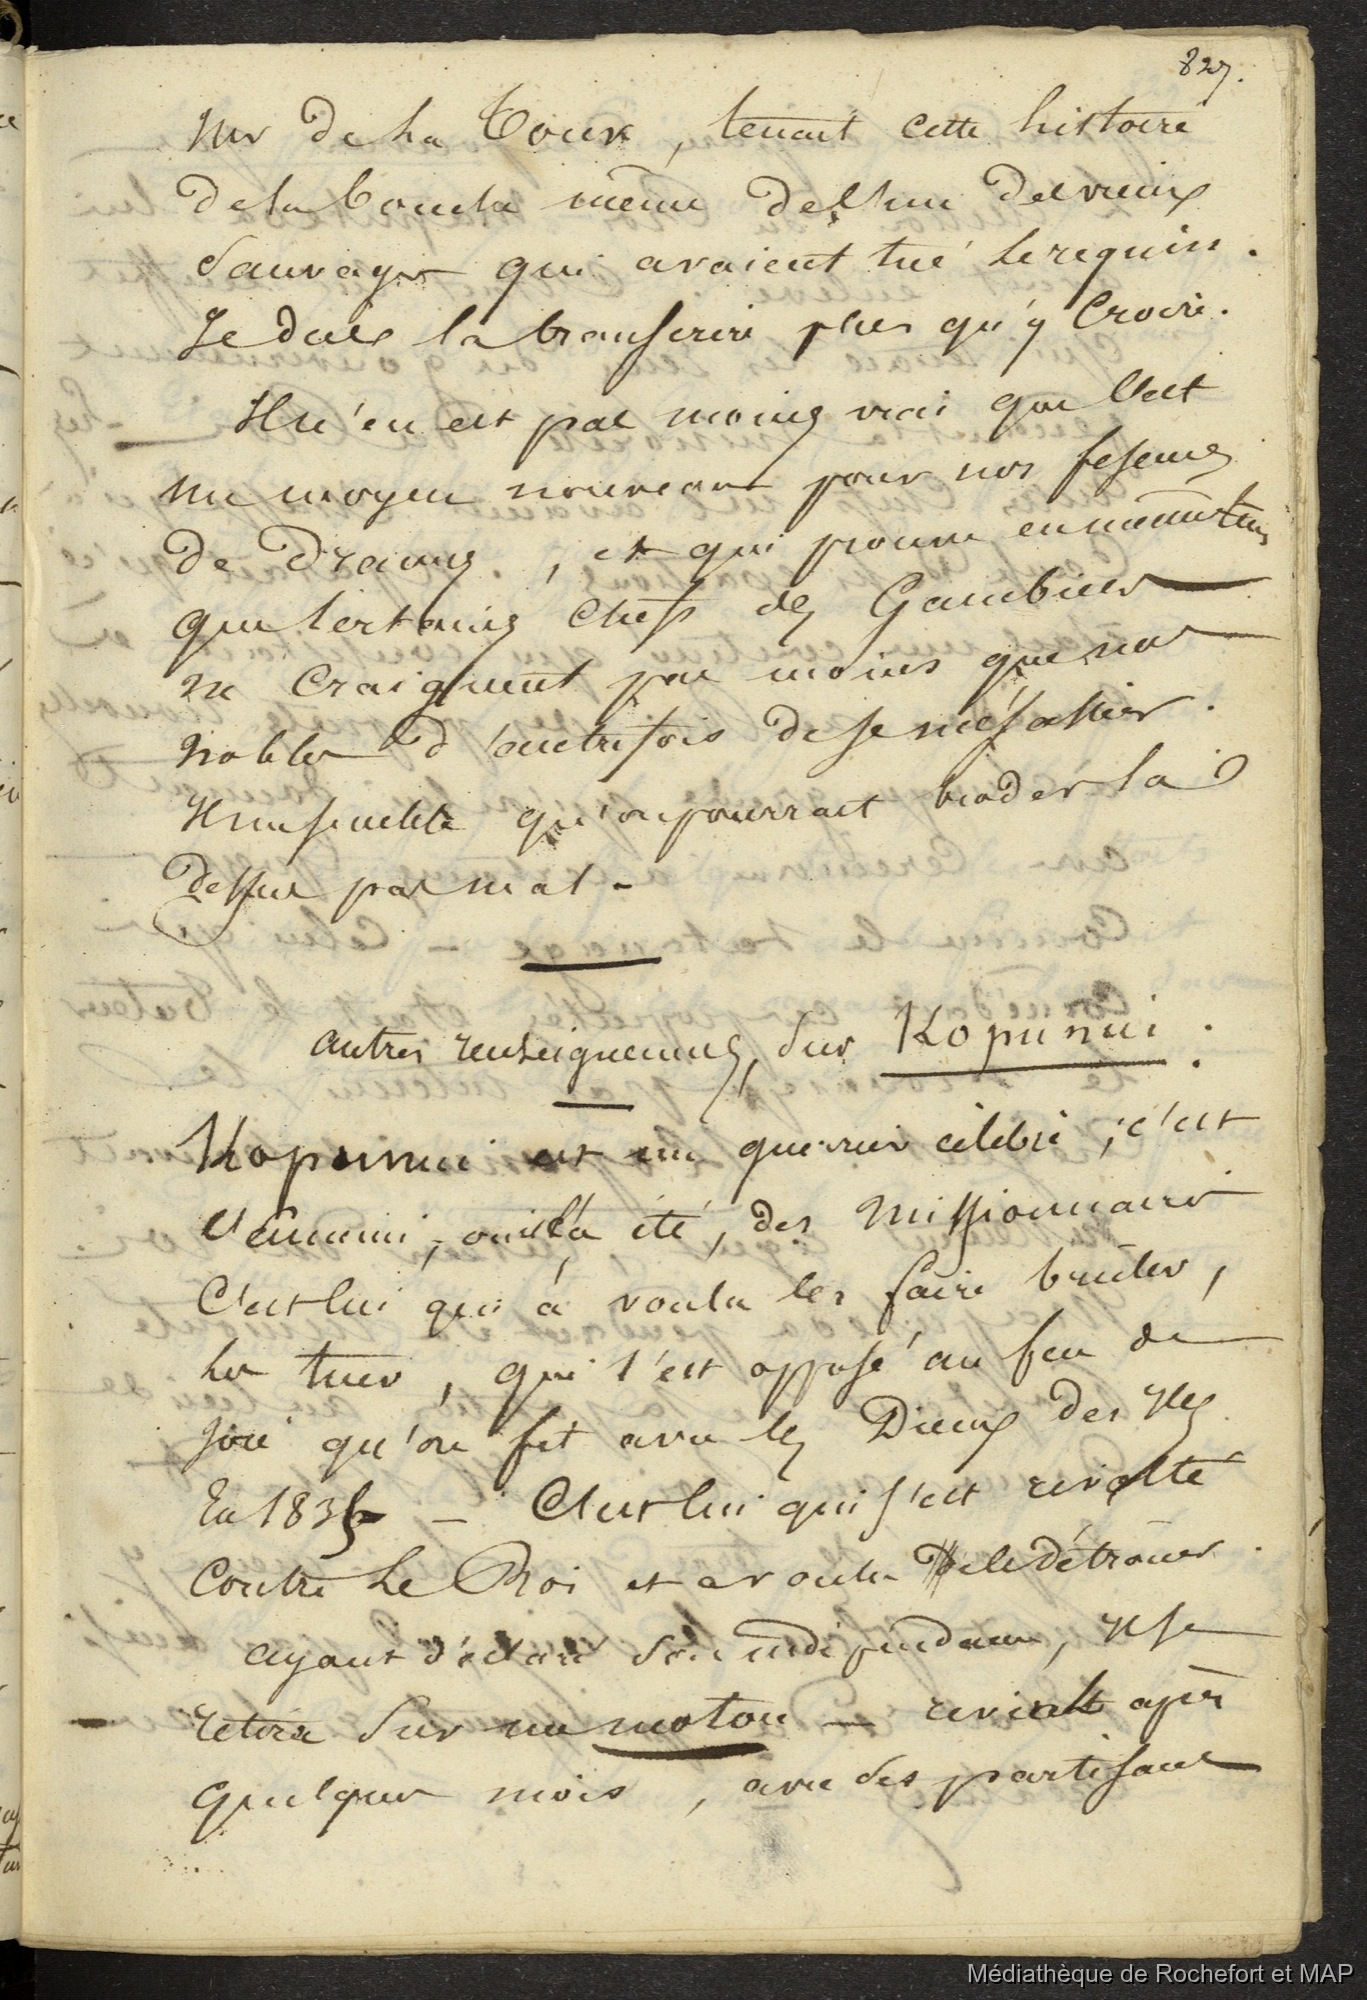 827.
Mr De La Tour, tenait cette histoire
De la bouche même De l'un Des vieux
Sauvages qui avaient tué le requin.
Je dois la transcrire plus qu'y croire.
Il n'en est pas moins vrai que c'est
un moyen nouveau pour nos feseurs
De Drames, et qui prouve en même tems
que certains chefs des Gambier
ne craignent pas moins que nos
nobles d'autrefois de se mésallier.
Il me semble qu'on pourrait broder la
Dessus pas mal -
autres renseignemens, sur Kopunui :
Kopunui est un guerrier célèbre ; c'est
l'ennemi, ou il l'a été, des Missionnaires
C'est lui qui a voulu les faire bruler,
les tuer, qui s'est opposé au feu de
joie qu'on fit avec les Dieux des Iles
En 1835 - C'est lui qui s'est révolté
contre Le Roi et a voulu le détrôner.
ayant déclaré son indépendance, il se
retira sur un motou - revint après
quelques mois, avec des partisans
Médiathèque de Rochefort et MAP